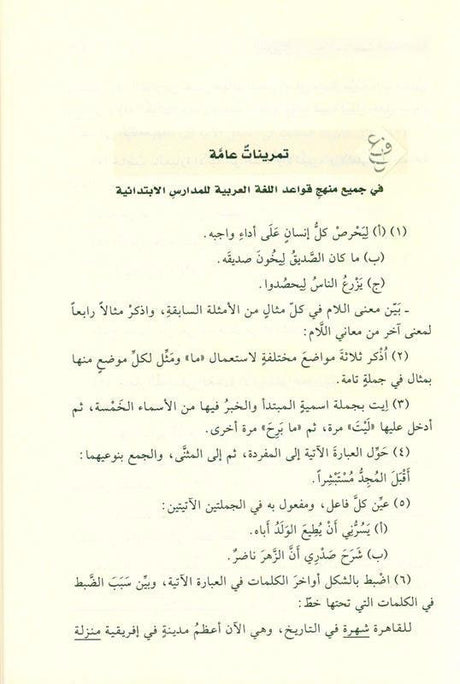 تمريناتٌ عامّة
في جميع منهجِ قواعد اللغة العربية للمدارسِ الابتدائية
(١) (أ) لِيَحْرصْ كلُّ إنسانٍ عَلَى أداءِ واجبه.
(ب) ما كان الصَّديقُ لِيخُونَ صديقَه.
(ج) يَزْرعُ الناسُ لِيحصُدوا.
ـ بَيّن معنى اللام في كلّ مثالٍ من الأمثلة السابقةِ، واذكرْ مثالاً رابعاً
لمعنى آخر من معاني اللَّام:
(٢) اُذْكر ثلاثةَ مواضعَ مختلفةٍ لاستعمال «ما» ومَثِّل لكلِّ موضعٍ منها
بمثال في جملةٍ تامة.
(٣) اِيت بجملة اسميةٍ المبتدأ والخبرُ فيها من الأسماء الخَمْسة، ثم
أدخل عليها «لَيْتَ» مرة، ثم «ما بَرِحَ» مرة أخرى.
(٤) حَوِّل العبارةَ الآتيةَ إلى المفردة، ثم إلى المثنَّى، والجمع بنوعيهما:
أَقْبَلَ المُجِدُّ مُسْتَبْشِراً.
(٥) عيِّن كلَّ فاعل، ومفعول به في الجملتين الآتيتين:
(أ) يَسُرُّنِي أَنْ يُطِيعَ الوَلَدُ أَباه.
(ب) شَرَحَ صَدْرِي أَنَّ الزَّهرَ ناضرٌ.
(٦) اضْبط بالشكل أواخرَ الكلمات في العبارة الآتية، وبيِّن سَبَبَ الضَّبط
في الكلمات التي تحتها خطّ:
للقاهرة شهرة في التاريخ، وهي الآن أعظمُ مدينةٍ في إفريقية منزلة